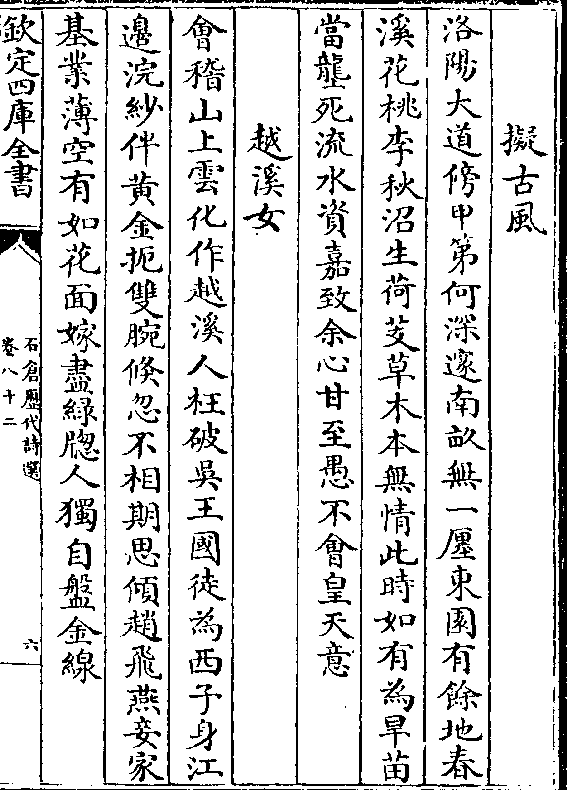 擬古風
洛陽大道傍甲第何深邃南畝無一廛東園有餘地春
溪花桃李秋沼生荷芰草木本無情此時如有為旱苗
當壟死流水資嘉致余心甘至愚不會皇天意
越溪女
會稽山上雲化作越溪人枉破吳王國徒為西子身江
邉浣紗伴黃金扼雙腕倐忽不相期思傾趙飛燕妾家
基業薄空有如花面嫁盡綠牕人獨自盤金線
欽定四庫全書
石倉歷代詩選
卷八十二
六